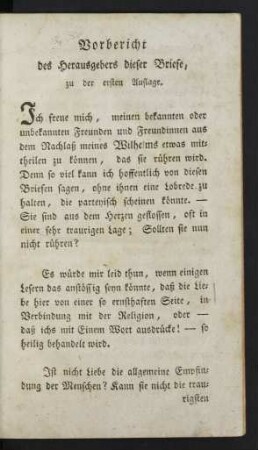 Vorbericht
des Herausgebers dieser Briefe,
zu der ersten Auflage.
Ich freue mich, meinen bekannten oder
unbekannten Freunden und Freundinnen aus
dem Nachlaß meines Wilhelms etwas mit-
theilen zu können, das sie rühren wird.
Denn so viel kann ich hoffentlich von diesen
Briefen sagen, ohne ihnen eine Lobrede zu
halten, die partenisch scheinen könnte. —
Sie sind aus dem Herzen geflossen, oft in
einer sehr traurigen Lage; Sollten sie nun
nicht rühren?
Es würde mir leid thun, wenn einigen
Lesern das anstössig seyn könnte, daß die Lie-
be hier von einer so ernsthaften Seite, in
Verbindung mit der Religion, oder —
daß ichs mit Einem Wort ausdrücke! — so
heilig behandelt wird.
Ist nicht Liebe die allgemeine Empfin-
dung der Menschen? Kann sie nicht die trau-
rigsten